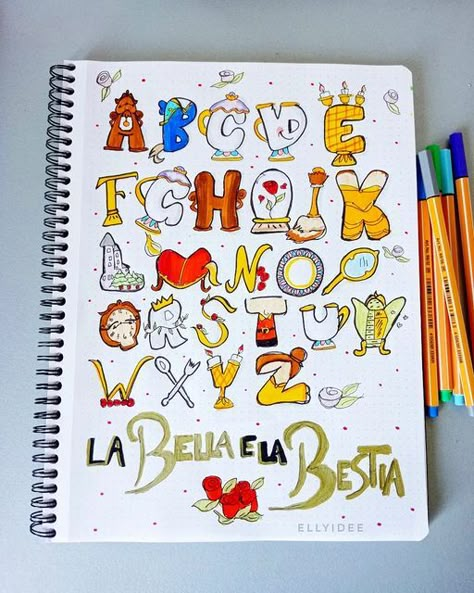 A B C D E
F G H I J K
L M N O P
Q R S T U V
W X Y Z
LA BELLA E LA BESTIA
ELLYIDEE